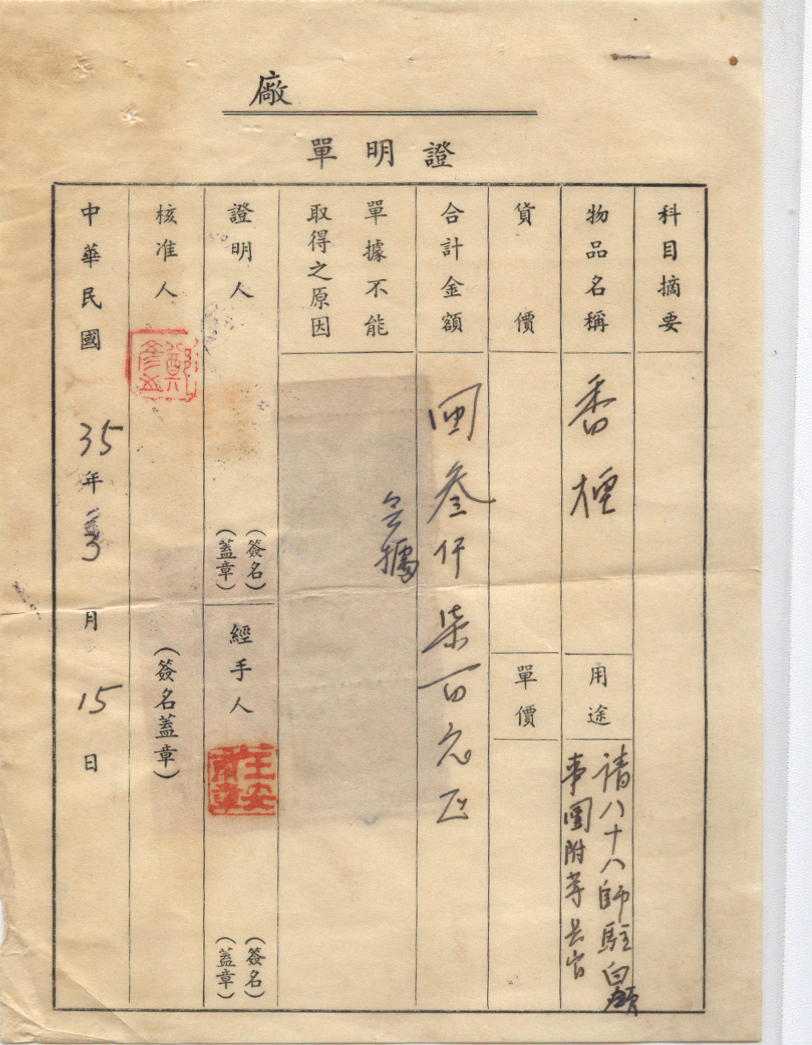 廠
證明單
科目摘要
物品名稱 香
用途 請八十八師駐白
事團附等長官
貨價
單價
合計金額 叁仟柒百元正
單據不能
取得之原因
據
證明人 (簽名)
(蓋章)
經手人 (簽名)
(蓋章)
王安章
核准人 (簽名蓋章)
鄭
中華民國 35年 月 15日